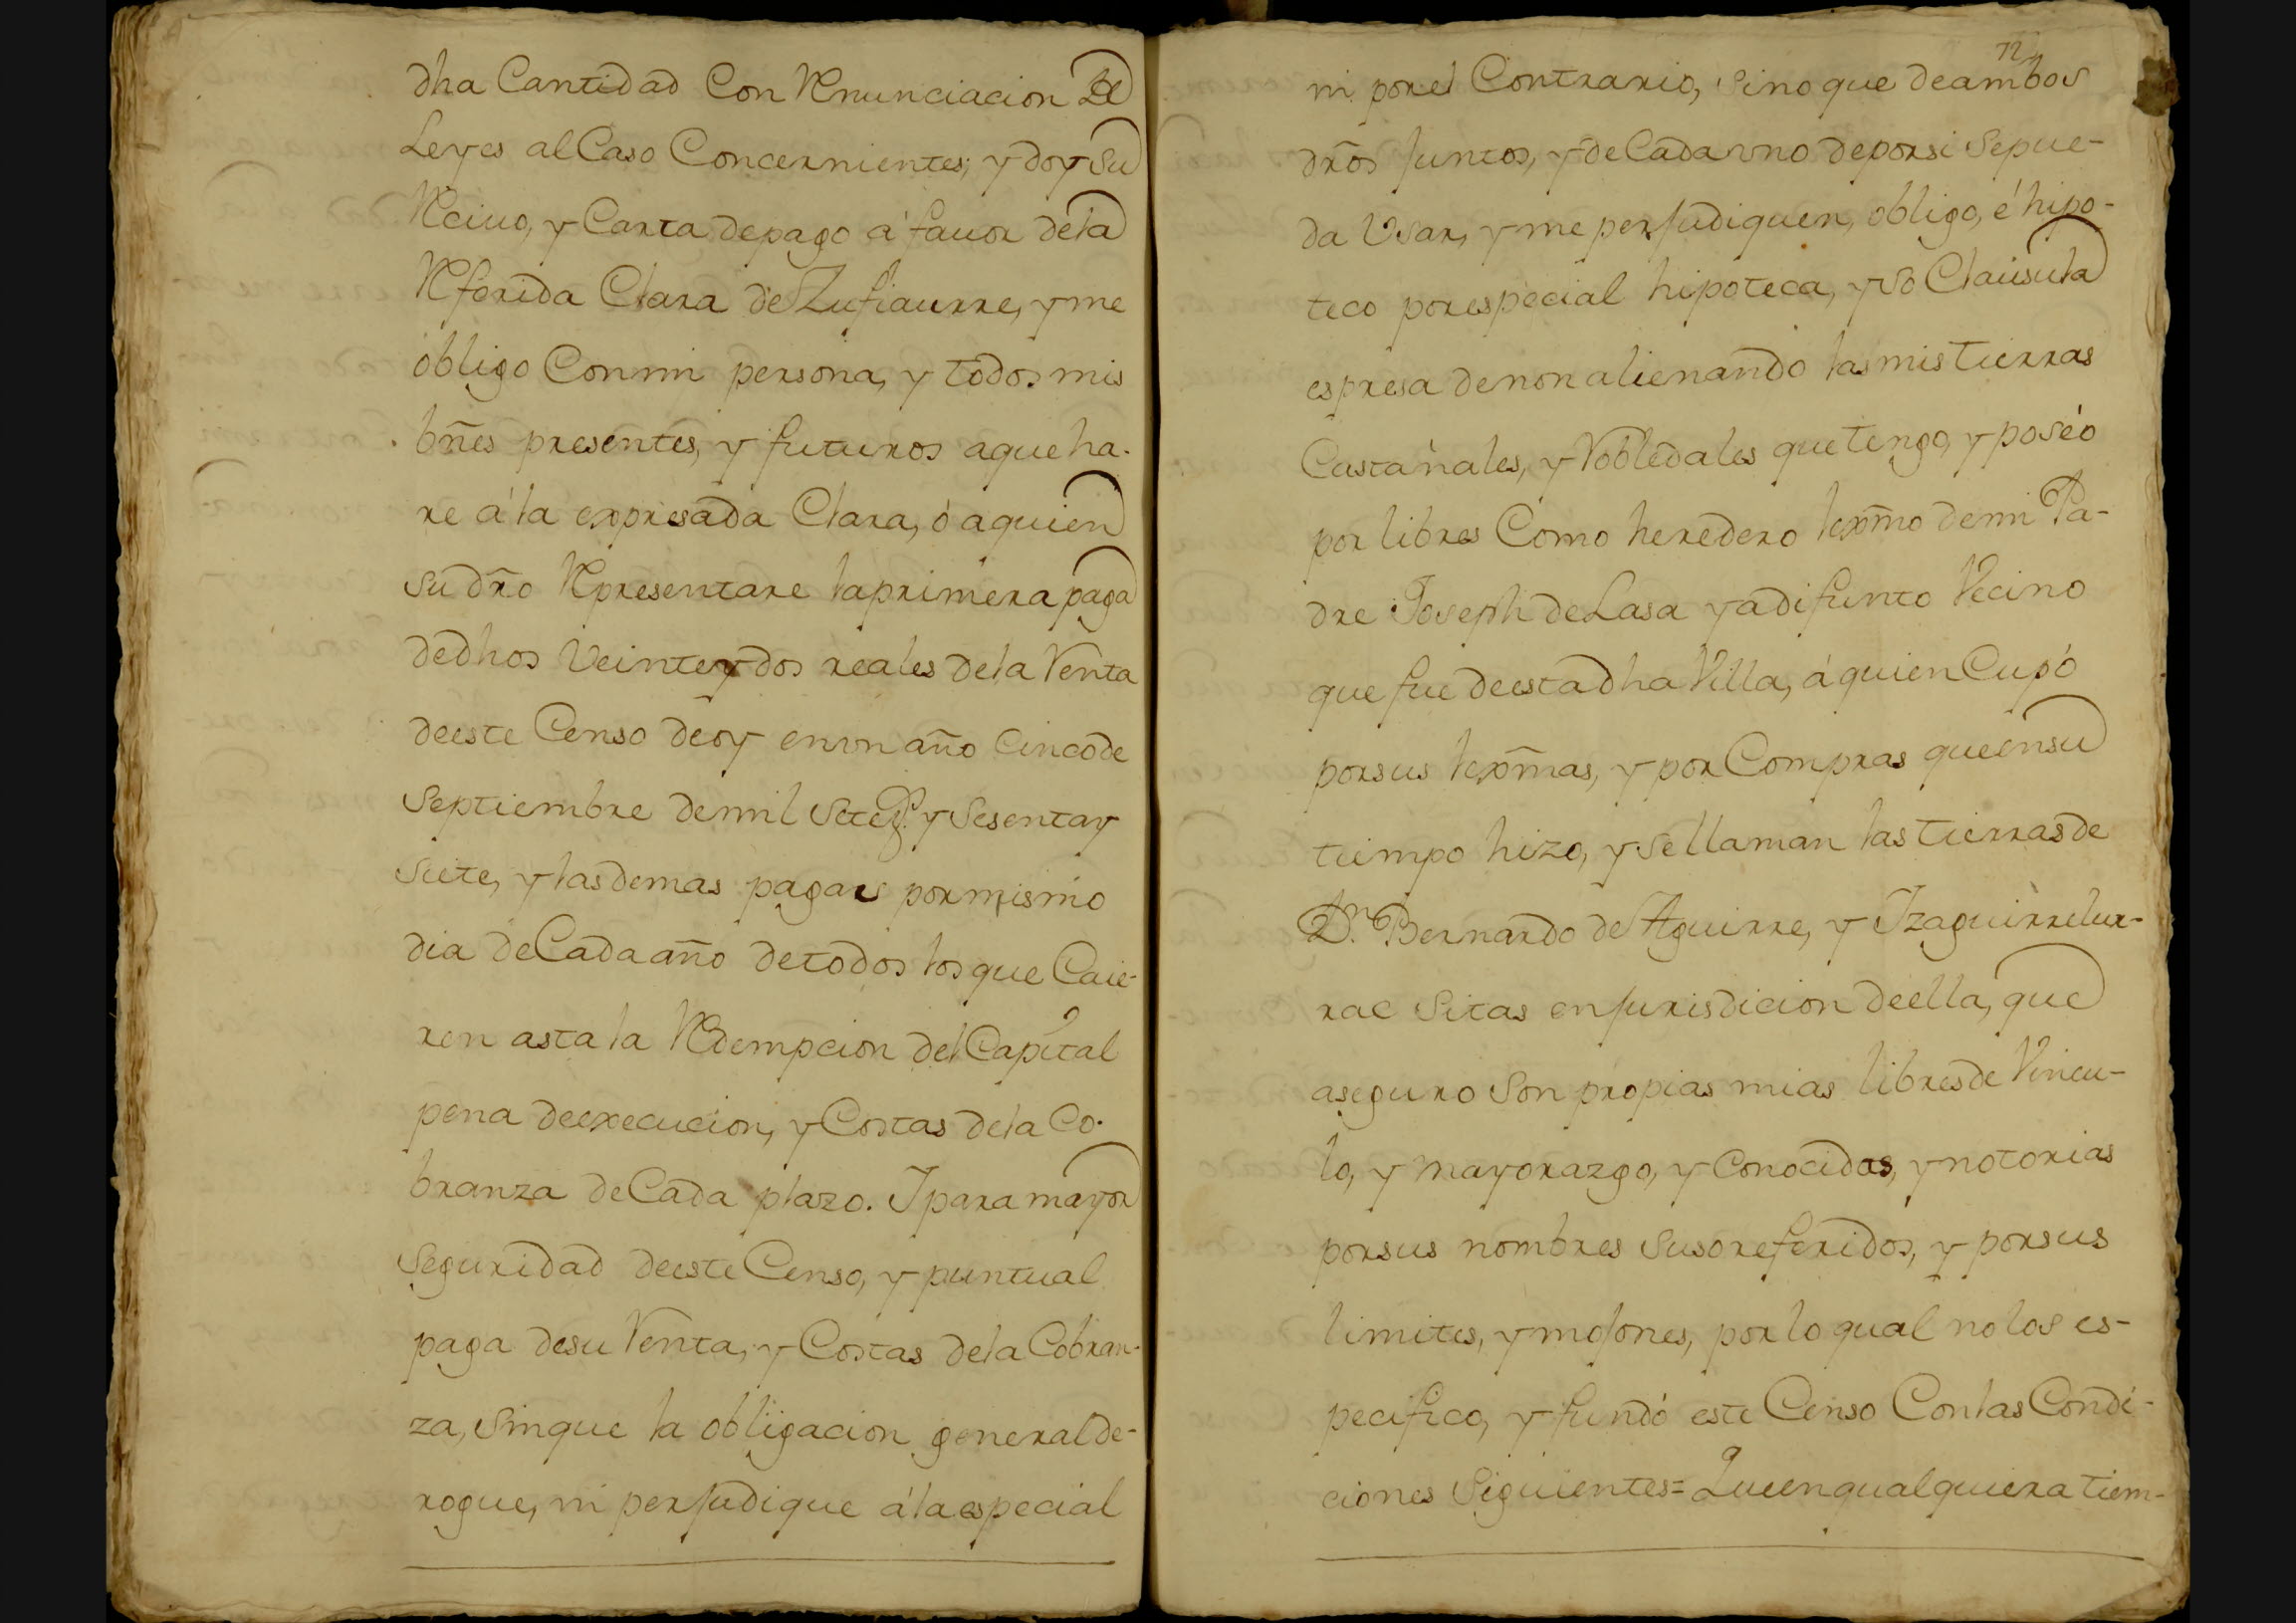 dha Cantidad Con Renunciacion De
Leyes al Caso Concernientes; y doy su
Reciuo, y Carta de pago á fauor de la
Referida Clara de Zufiaurre, y me
obligo Con mi persona, y todos mis
bñes presentes, y futuros a que ha-
re á la expresada Clara, ó a quien
su drõ Representare la primera paga
de dhos Veinte y dos reales de la Renta
de este Censo de oy en vn año Cinco de
Septiembre de mil Setec.s y Sesenta y
Siete, y las demas pagas por mismo
dia de Cada año de todos los que Caie-
ren asta la Redempcion del Capital
pena de execucion, y Costas de la Co-
branza de Cada plazo. I para mayor
Seguridad de este Censo, y puntual
paga de su Renta, y Costas de la Cobran-
za, Sin que la obligacion general de-
rogue, ni perjudique á la especial
72
ni por el Contrario, Sino que de ambos
drõs juntos, y de Cada vno de por si Se pue-
da Vsar, y me perjudiquen, obligo, é hipo-
teco por especial hipoteca, y so Clausula
espresa de non alienando las mis tierras
Castañales, y Robledales que tengo, y poséo
por libres Como heredero lexmõ de mi Pa-
dre Joseph de Lasa ya difunto Vecino
que fue de esta dha Villa, á quien Cupó
por sus lexmãs, y por Compras que en su
tiempo hizo, y se llaman las tierras de
Dn. Bernardo de Aguirre, y Izaguirrelur-
rac Sitas en jurisdicion de ella, que
aseguro Son propias mias libres de Vincu-
lo, y mayorazgo, y Conocidas, y notorias
por sus nombres Suso referidos, y por sus
limites, y mojones, por lo qual no los es-
pecifico, y fundó este Censo Con las Condi-
ciones Siguientes= Que en qualquiera tiem-